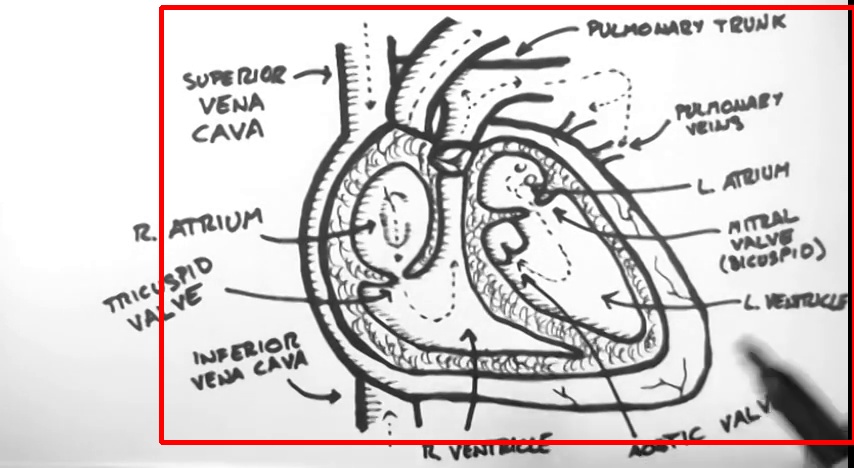 PULMONARY TRUNK
SUPERIOR
VENA
CAVA
PULMONARY
VEINS
L. ATRIUM
R. ATRIUM
MITRAL
VALVE
(BICUSPID)
TRICUSPID
VALVE
L. VENTRICLE
INFERIOR
VENA CAVA
R. VENTRICLE
AORTIC VALV